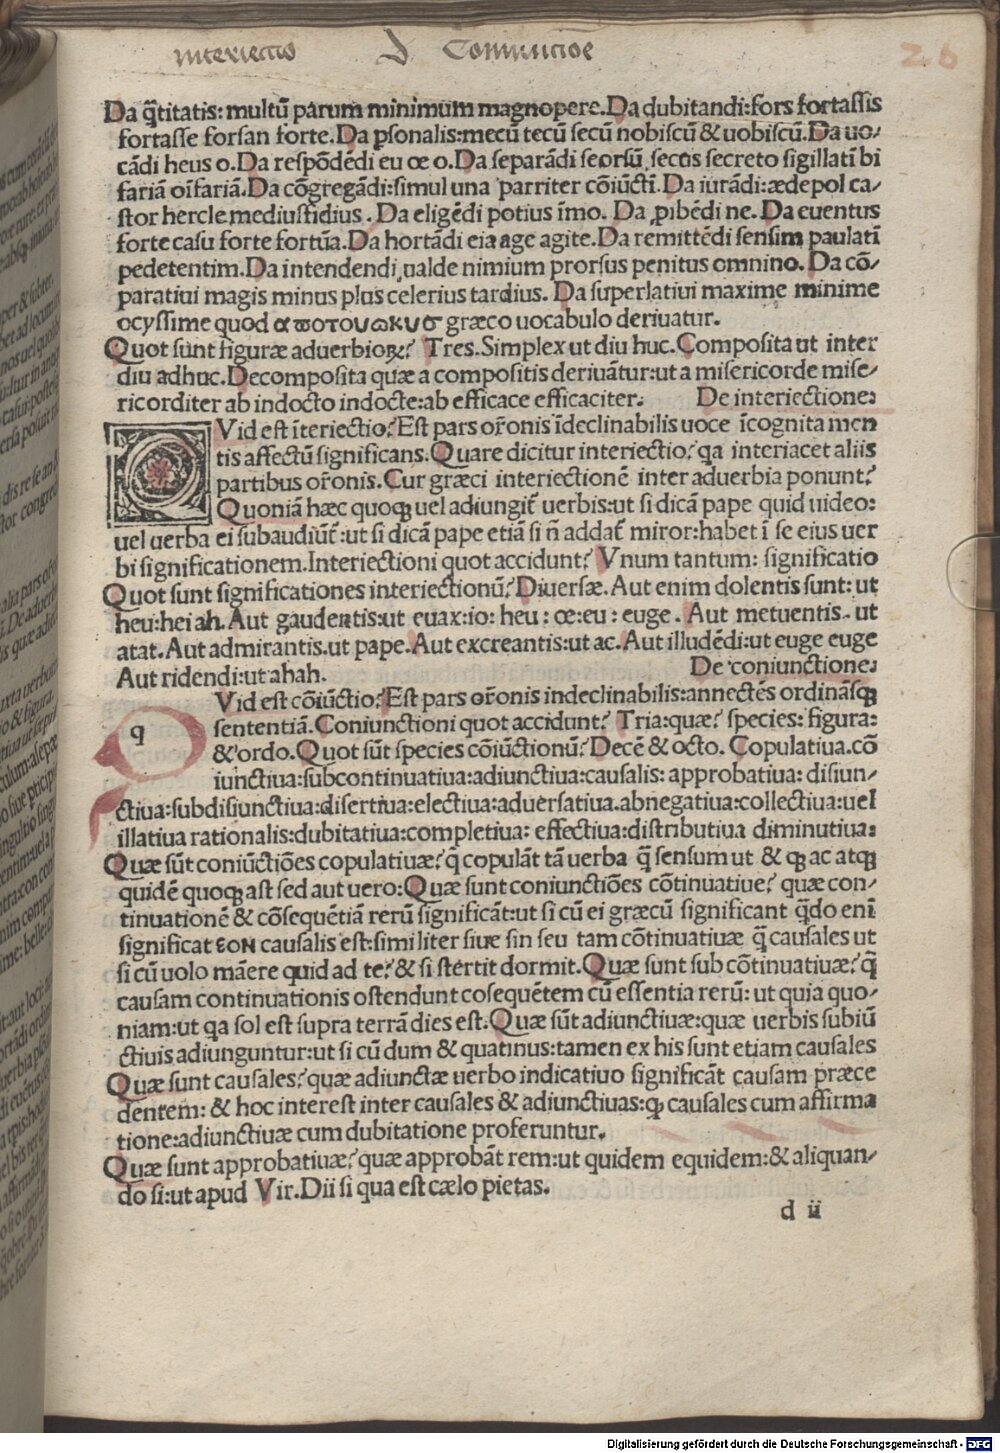 interiectio D Coniunctiōe 26
Da q̃titatis: multū parum minimum magnopere.Da dubitandi:fors fortassis
fortasse forsan forte.Da psonalis:mecū tecū secū nobiscū & uobiscū.Da uo-
cādi heus o.Da respōdēdi eu œ o.Da separādi seorsū secus secreto sigillatī bi
fariā oīfariā.Da cōgregādi:simul una parriter cōiūctī.Da iurādi:ædepol ca-
stor hercle mediusfidius . Da eligēdi potius īmo. Da ꝓibēdi ne. Da euentus
forte casu forte fortūa.Da hortādi eia age agite.Da remittēdi sensim paulatī
pedetentim.Da intendendi ualde nimium prorsus penitus omnino. Da cō-
paratiui magis minus plus celerius tardius. Da superlatiui maxime minime
ocyssime quod αποτουωκυσ græco uocabulo deriuatur.
Quot sunt figuræ aduerbioꝝ? Tres.Simplex ut diu huc.Composita ut inter
diu adhuc.Decomposita quæ a compositis deriuātur:ut a misericorde mise-
ricorditer ab indocto indocte:ab efficace efficaciter. De interiectione:
QVid est īteriectio? Est pars or̄onis īdeclinabilis uoce īcognita men
tis affectū significans.Quare dicitur interiectio? qa interiacet aliis
partibus or̄onis. Cur græci interiectionē inter aduerbia ponunt?
Quoniā hæc quoqꝫ uel adiungit̄ uerbis:ut si dicā pape quid uideo:
uel uerba ei subaudiūt̄:ut si dicā pape etiā si n̄ addat̄ miror:habet ī se eius uer
bi significationem.Interiectioni quot accidunt? Vnum tantum: significatio
Quot sunt significationes interiectionū? Diuersæ. Aut enim dolentis sunt: ut
heu:hei ah. Aut gaudentis:ut euax:io: heu : œ:eu : euge . Aut metuentis. ut
atat. Aut admirantis.ut pape. Aut excreantis:ut ac. Aut illudēdi:ut euge euge
Aut ridendi:ut ahah. De coniunctione:
q Vid est cōiūctio? Est pars or̄onis indeclinabilis:annectēs ordināsqꝫ
sententiā. Coniunctioni quot accidunt? Tria:quæ? species: figura:
& ordo. Quot sūt species cōiūctionū? Decē & octo. Copulatiua.cō
iunctiua:subcontinuatiua:adiunctiua:causalis: approbatiua: disiun-
ctiua:subdisiunctiua:disertiua:electiua:aduersatiua.abnegatiua:collectiua:uel
illatiua rationalis:dubitatiua:completiua: effectiua:distributiua diminutiua:
Quæ sūt coniūctiōes copulatiuæ? q̄ copulāt tā uerba q̃ sensum ut & qꝫ ac atqꝫ
quidē quoqꝫ ast sed aut uero: Quæ sunt coniunctiōes cōtinuatiue? quæ con-
tinuationē & cōsequētiā rerū significāt:ut si cū ei græcū significant q̄do enī
significat εον causalis est:similiter siue sin seu tam cōtinuatiuæ q̃ causales ut
si cū uolo mānere quid ad te? & si stertit dormit. Quæ sunt sub cōtinuatiuæ? q̄
causam continuationis ostendunt cosequētem cū essentia rerū: ut quia quo-
niam:ut qa sol est supra terrā dies est. Quæ sūt adiunctiuæ:quæ uerbis subiū
ctiuis adiunguntur:ut si cū dum & quatinus:tamen ex his sunt etiam causales
Quæ sunt causales? quæ adiunctæ uerbo indicatiuo significāt causam præce
dentem: & hoc interest inter causales & adiunctiuas:qꝫ causales cum affirma
tione:adiunctiuæ cum dubitatione proferuntur.
Quæ sunt approbatiuæ? quæ approbāt rem:ut quidem equidem:& aliquan-
do si:ut apud Vir.Dii si qua est cælo pietas.
d ii
Digitalisierung gefördert durch die Deutsche Forschungsgemeinschaft - DFG